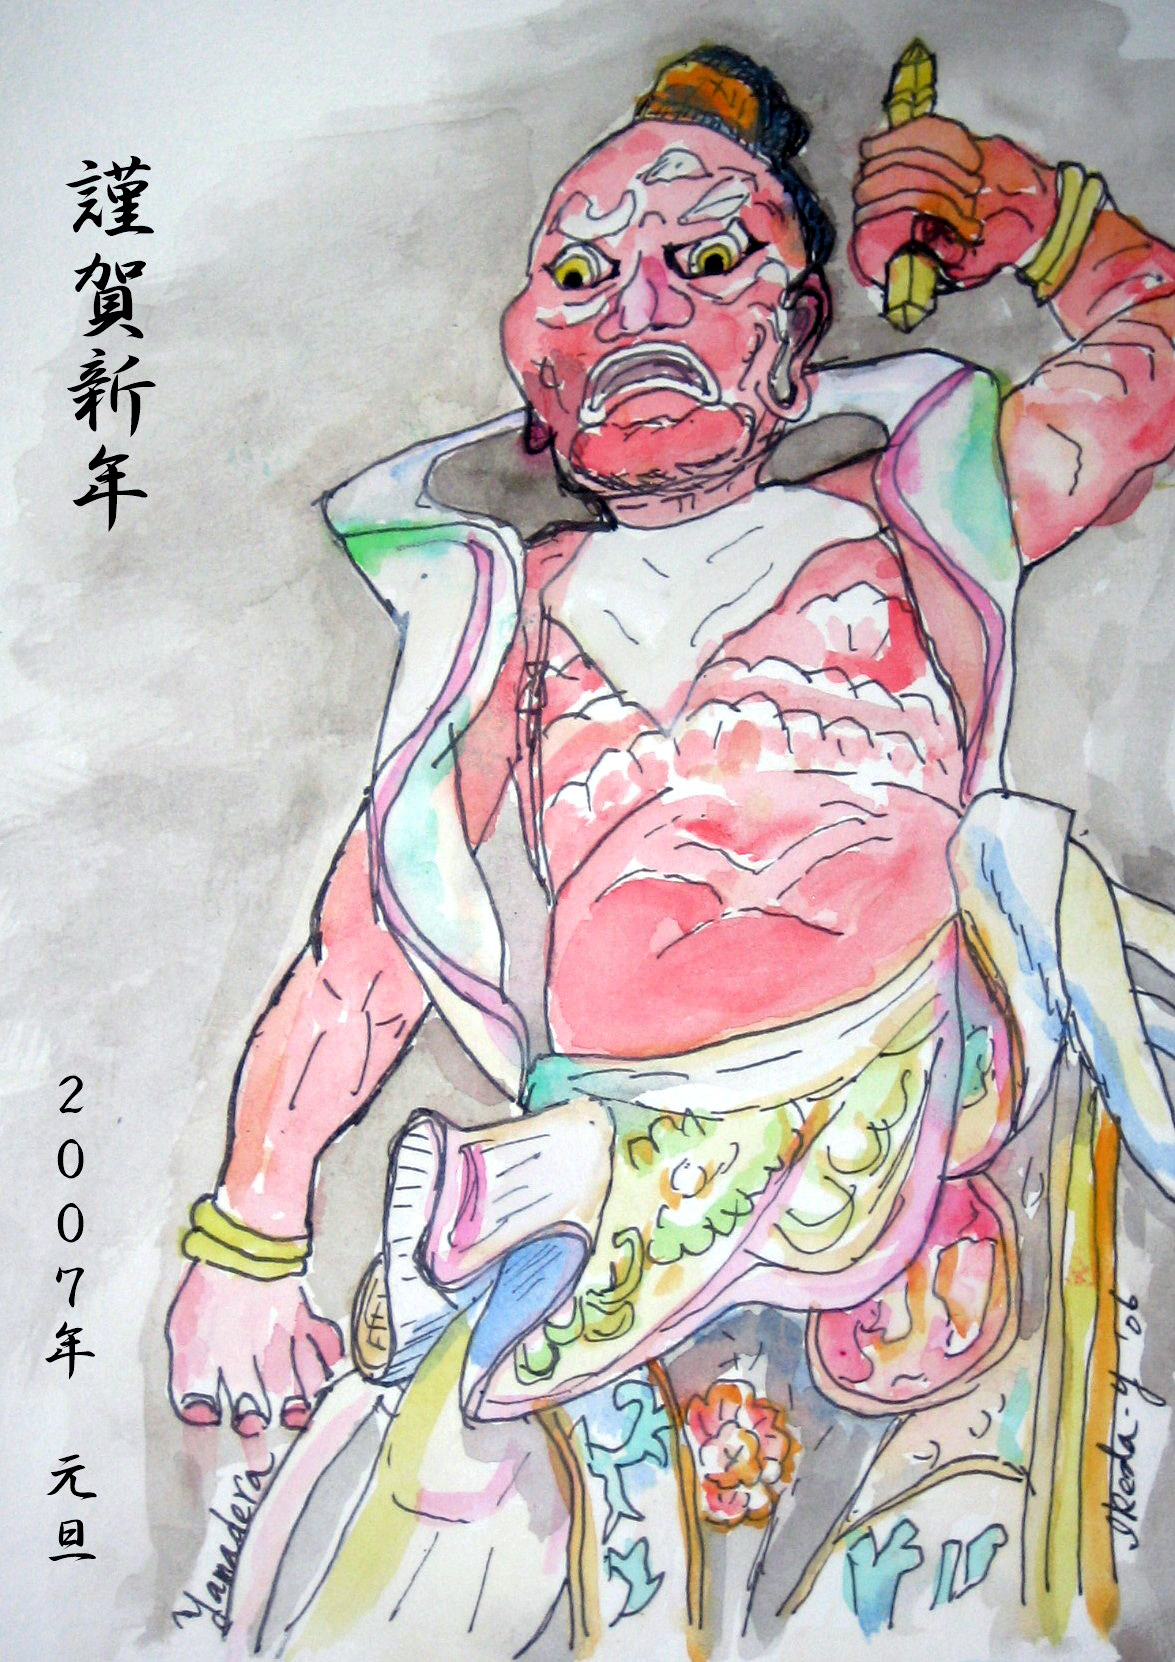 謹賀新年
2007年 元旦
Yamadera
Ikeda-y '06